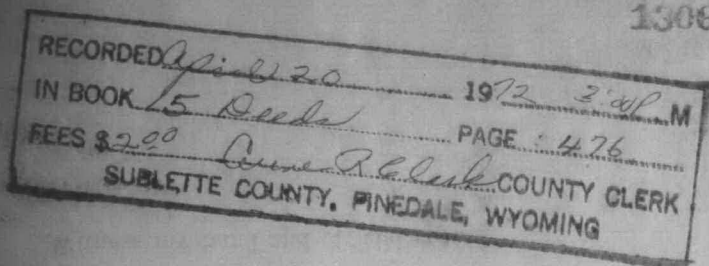 1308
RECORDED April 20 1972 3:00 P M
IN BOOK 15 Deeds PAGE 476
FEES $2.00 Clark COUNTY CLERK
SUBLETTE COUNTY, PINEDALE, WYOMING